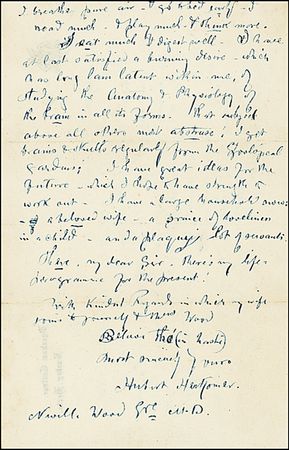 I breathe pure air - I go to bed early - I
read much & play much & think more.
I eat much & digest well - & I have
at last satisfied a burning desire - which
has long lain latent within me, of
studying the Anatomy & Physiology of
the brain in all its forms. That subject
above all others most abstruse; I get
brains & skulls regularly from the Zoological
Gardens; I have great ideas for the
future - which I hope to have strength to
work out - I have a large household
- a beloved wife - a of loveliness
in a child - and a plaguy lot of servants.
There, my dear Sir - there's my life-
programme for the present!
With kindest regards in which my wife
joins to yourself & Mrs Wood
Believe me (in haste)
most sincerely yours
Hubert Herkomer.
Neville Wood Esq M.D.